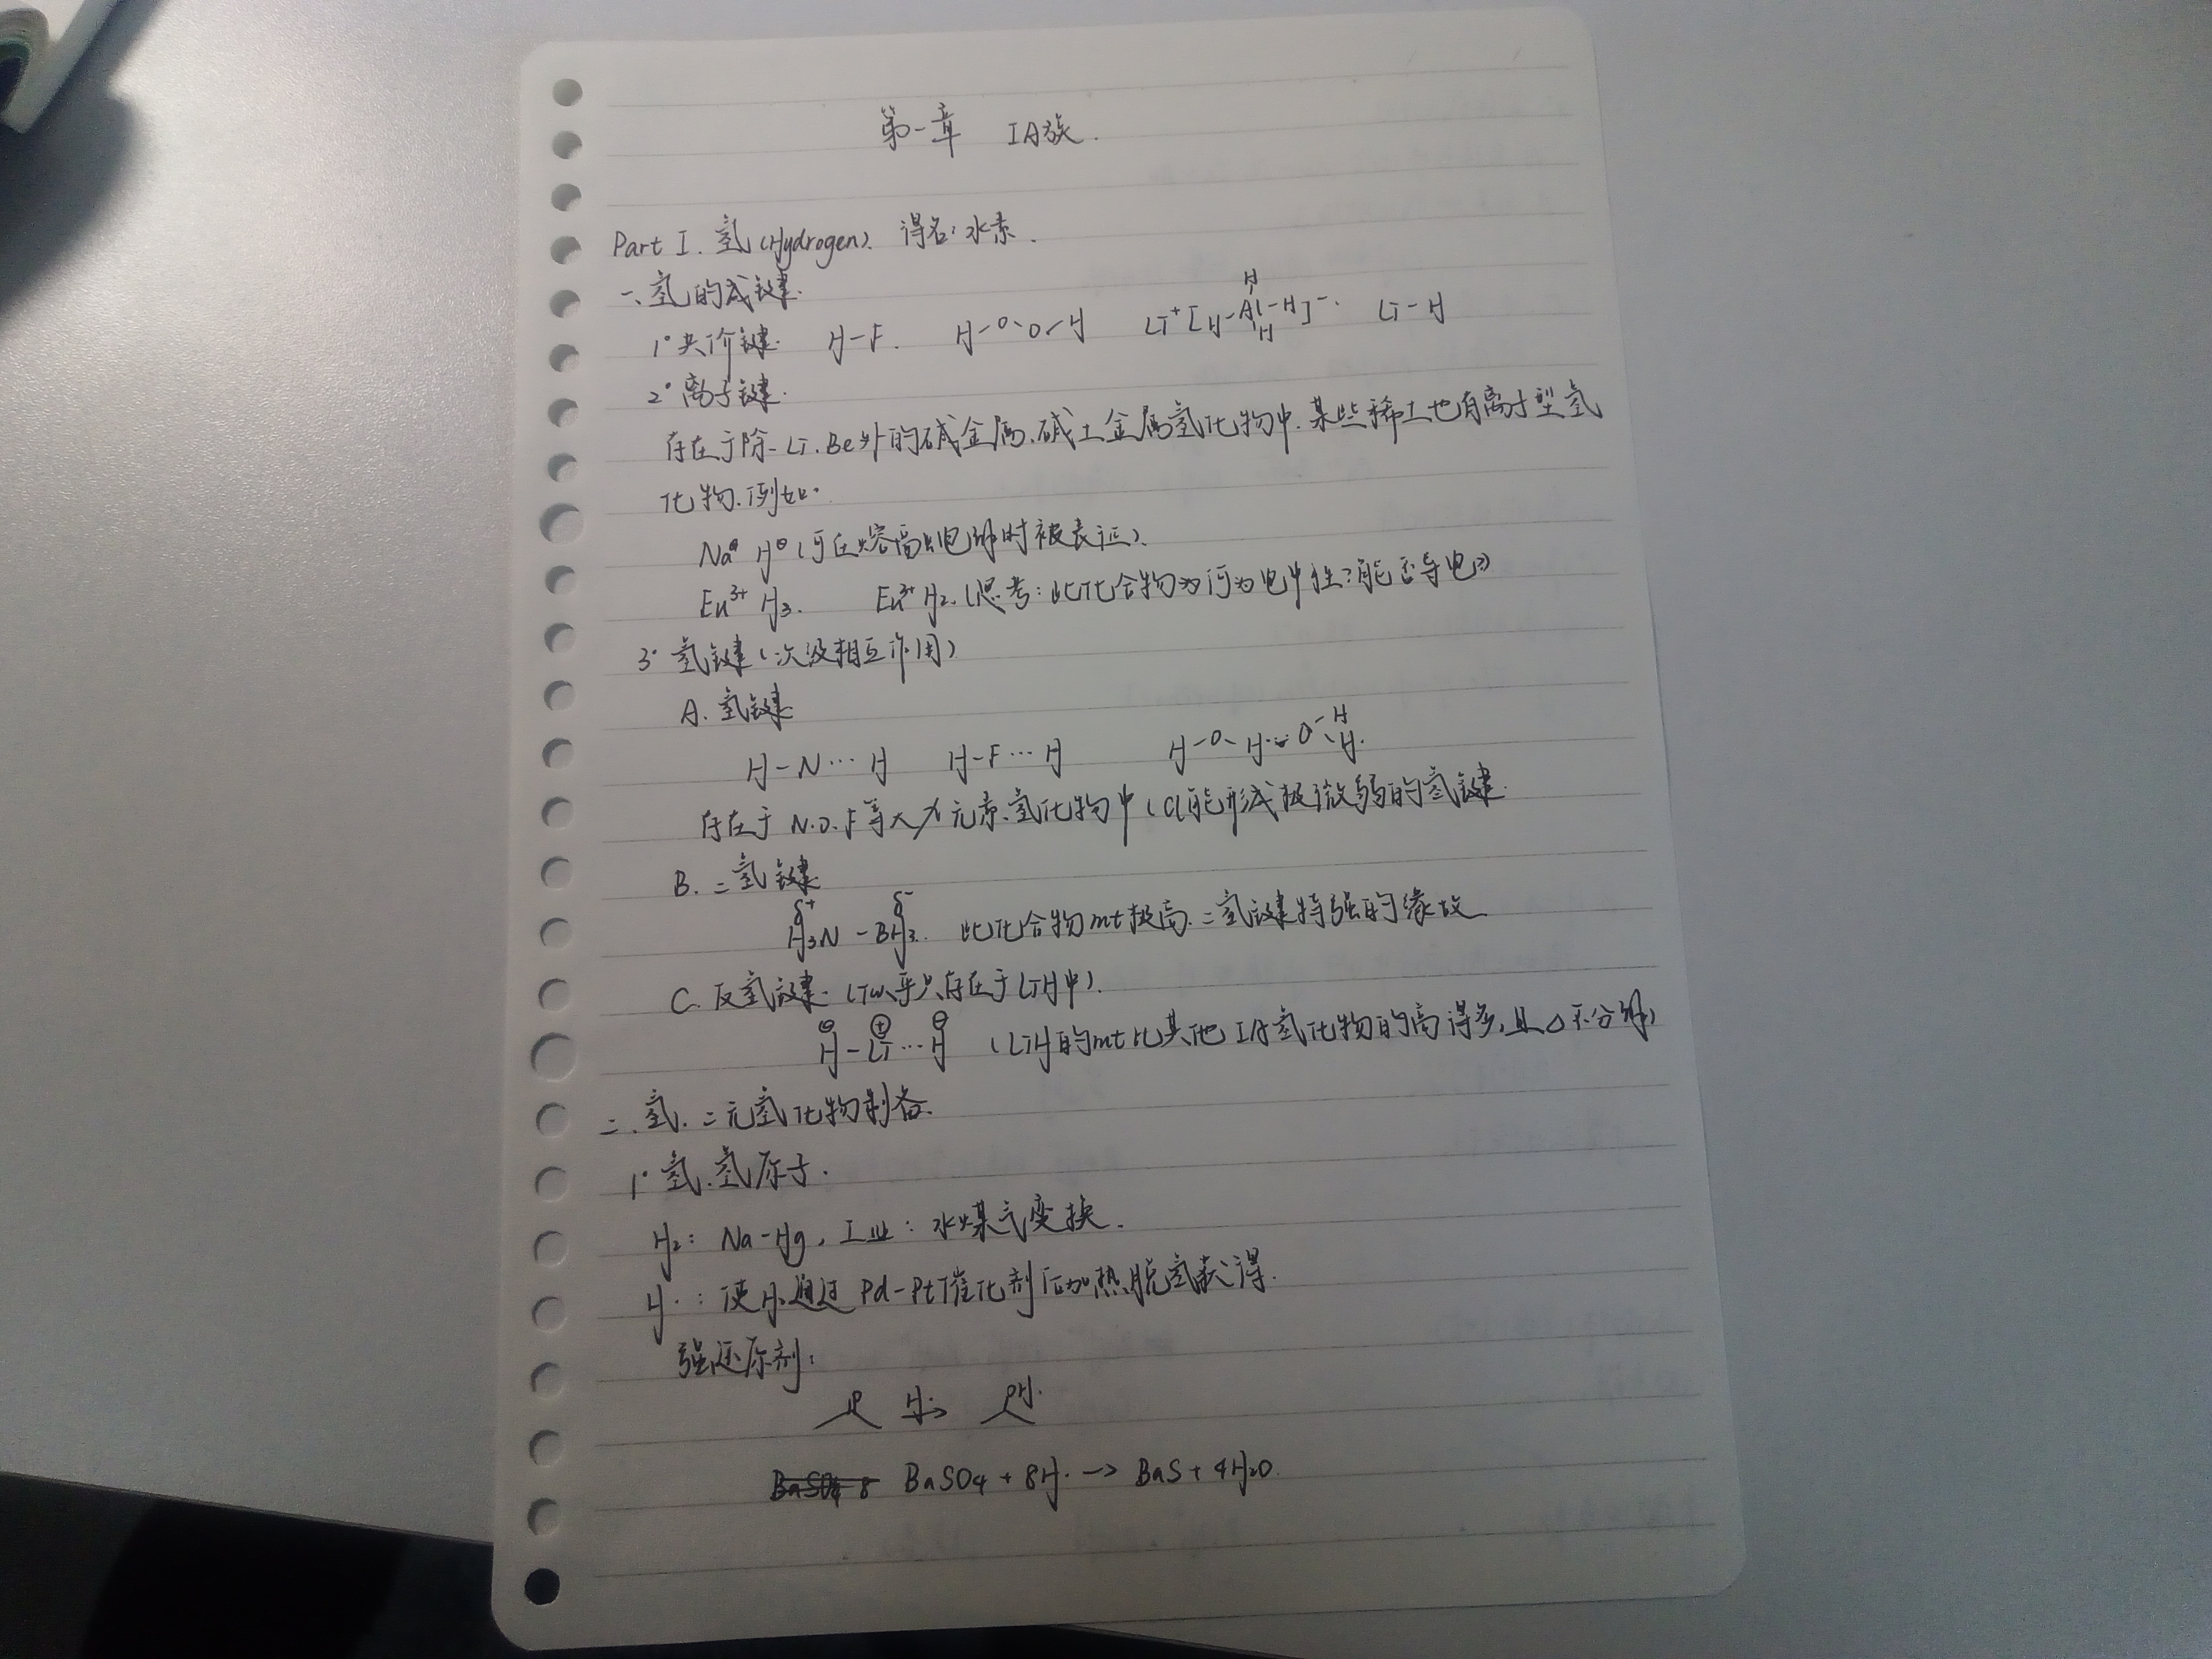 第一章 IA族.
Part I. 氢(Hydrogen). 得名:水素.
一、氢的成键.
H
1°共价键. H-F. H-O-O-H Li⁺[H-Al-H]⁻. Li-H
H
2°离子键.
存在于除Li.Be外的碱金属.碱土金属氢化物中.某些稀土也有离子型氢
化物.例如.
Na⊕ H⊖(可在熔融电解时被表征).
Eu³⁺ H₃. Eu³⁺H₂.(思考:此化合物为何为电中性?能否导电?)
3°氢键(次级相互作用)
A.氢键
H-N…H H-F…H H-O-H…O-H
H.
存在于N.O.F等大χ元素.氢化物中(Cl能形成极微弱的氢键.
B.二氢键
δ⁺ δ⁻
H₃N-BH₃. 此化合物mt极高.二氢键特强的缘故
C.反氢键.(似乎只存在于LiH中).
⊖ ⊕ ⊖
H-Li…H (LiH的mt比其他IA氢化物的高得多,且△不分解)
二.氢.二元氢化物制备.
1°氢.氢原子.
H₂: Na-Hg, 工业:水煤气变换.
H·:使H₂通过Pd-Pt催化剂后加热脱氢获得.
强还原剂:
O H·→ OH.
BaSO₄ 8 BaSO₄+8H·→BaS+4H₂O.